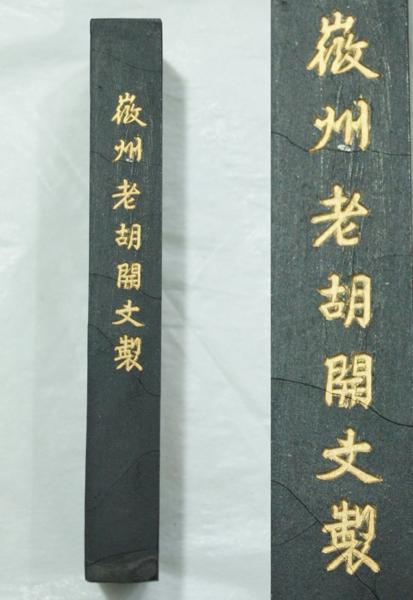 徽州老胡開文製
徽州老胡開文製